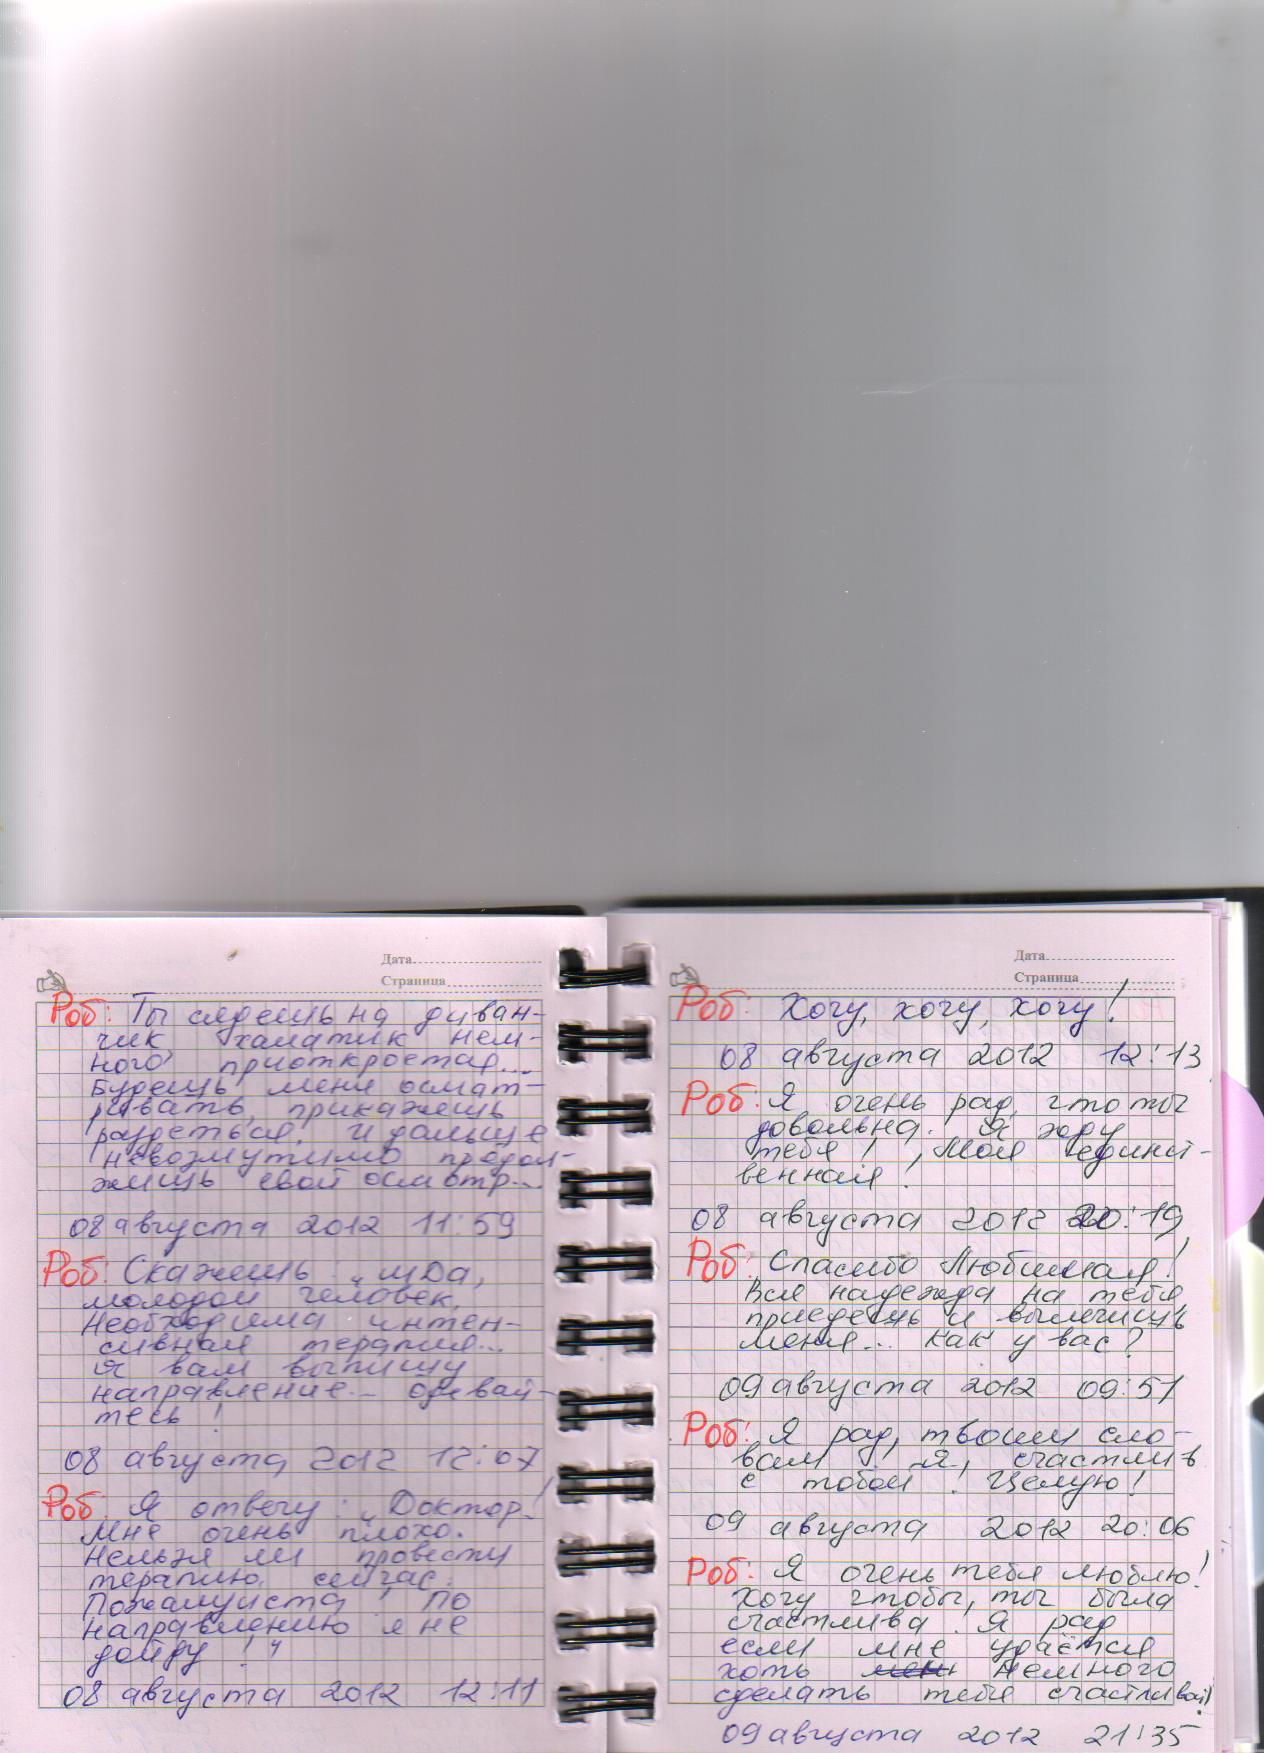 Дата
Страница
Роб: Ты сядешь на диван-
чик, халатик нем-
ного приоткроется...
Будешь меня осмат-
ривать, прикажешь
раздеться. И дальше
невозмутимо продол-
жишь свой осмотр...
08 августа 2012 11:59
Роб: Скажешь: „мДа,
молодой человек,
Необходима интен-
сивная терапия...
Я вам выпишу
направление... одевай-
тесь!
08 августа 2012 12:07
Роб: Я отвечу: „Доктор!
Мне очень плохо.
Нельзя ли провести
терапию сейчас.
Пожалуйста! По
направлению я не
дойду!"
08 августа 2012 12:11
Дата
Страница
Роб: Хочу, хочу, хочу!
08 августа 2012 12:13
Роб: Я очень рад, что ты
довольна. Я жду
тебя! Моя единст-
венная!
08 августа 2012 20:19
Роб: Спасибо Любимая!
Вся надежда на тебя
приедешь и вылечишь
меня... Как у вас?
09 августа 2012 09:57
Роб: Я рад, твоим сло-
вам. Я, счастлив
с тобой! Целую!
09 августа 2012 20:06
Роб: Я очень тебя люблю!
Хочу чтобы, ты была
счастлива! Я рад
если мне удаётся
хоть немного
сделать тебя счастливой!
09 августа 2012 21:35